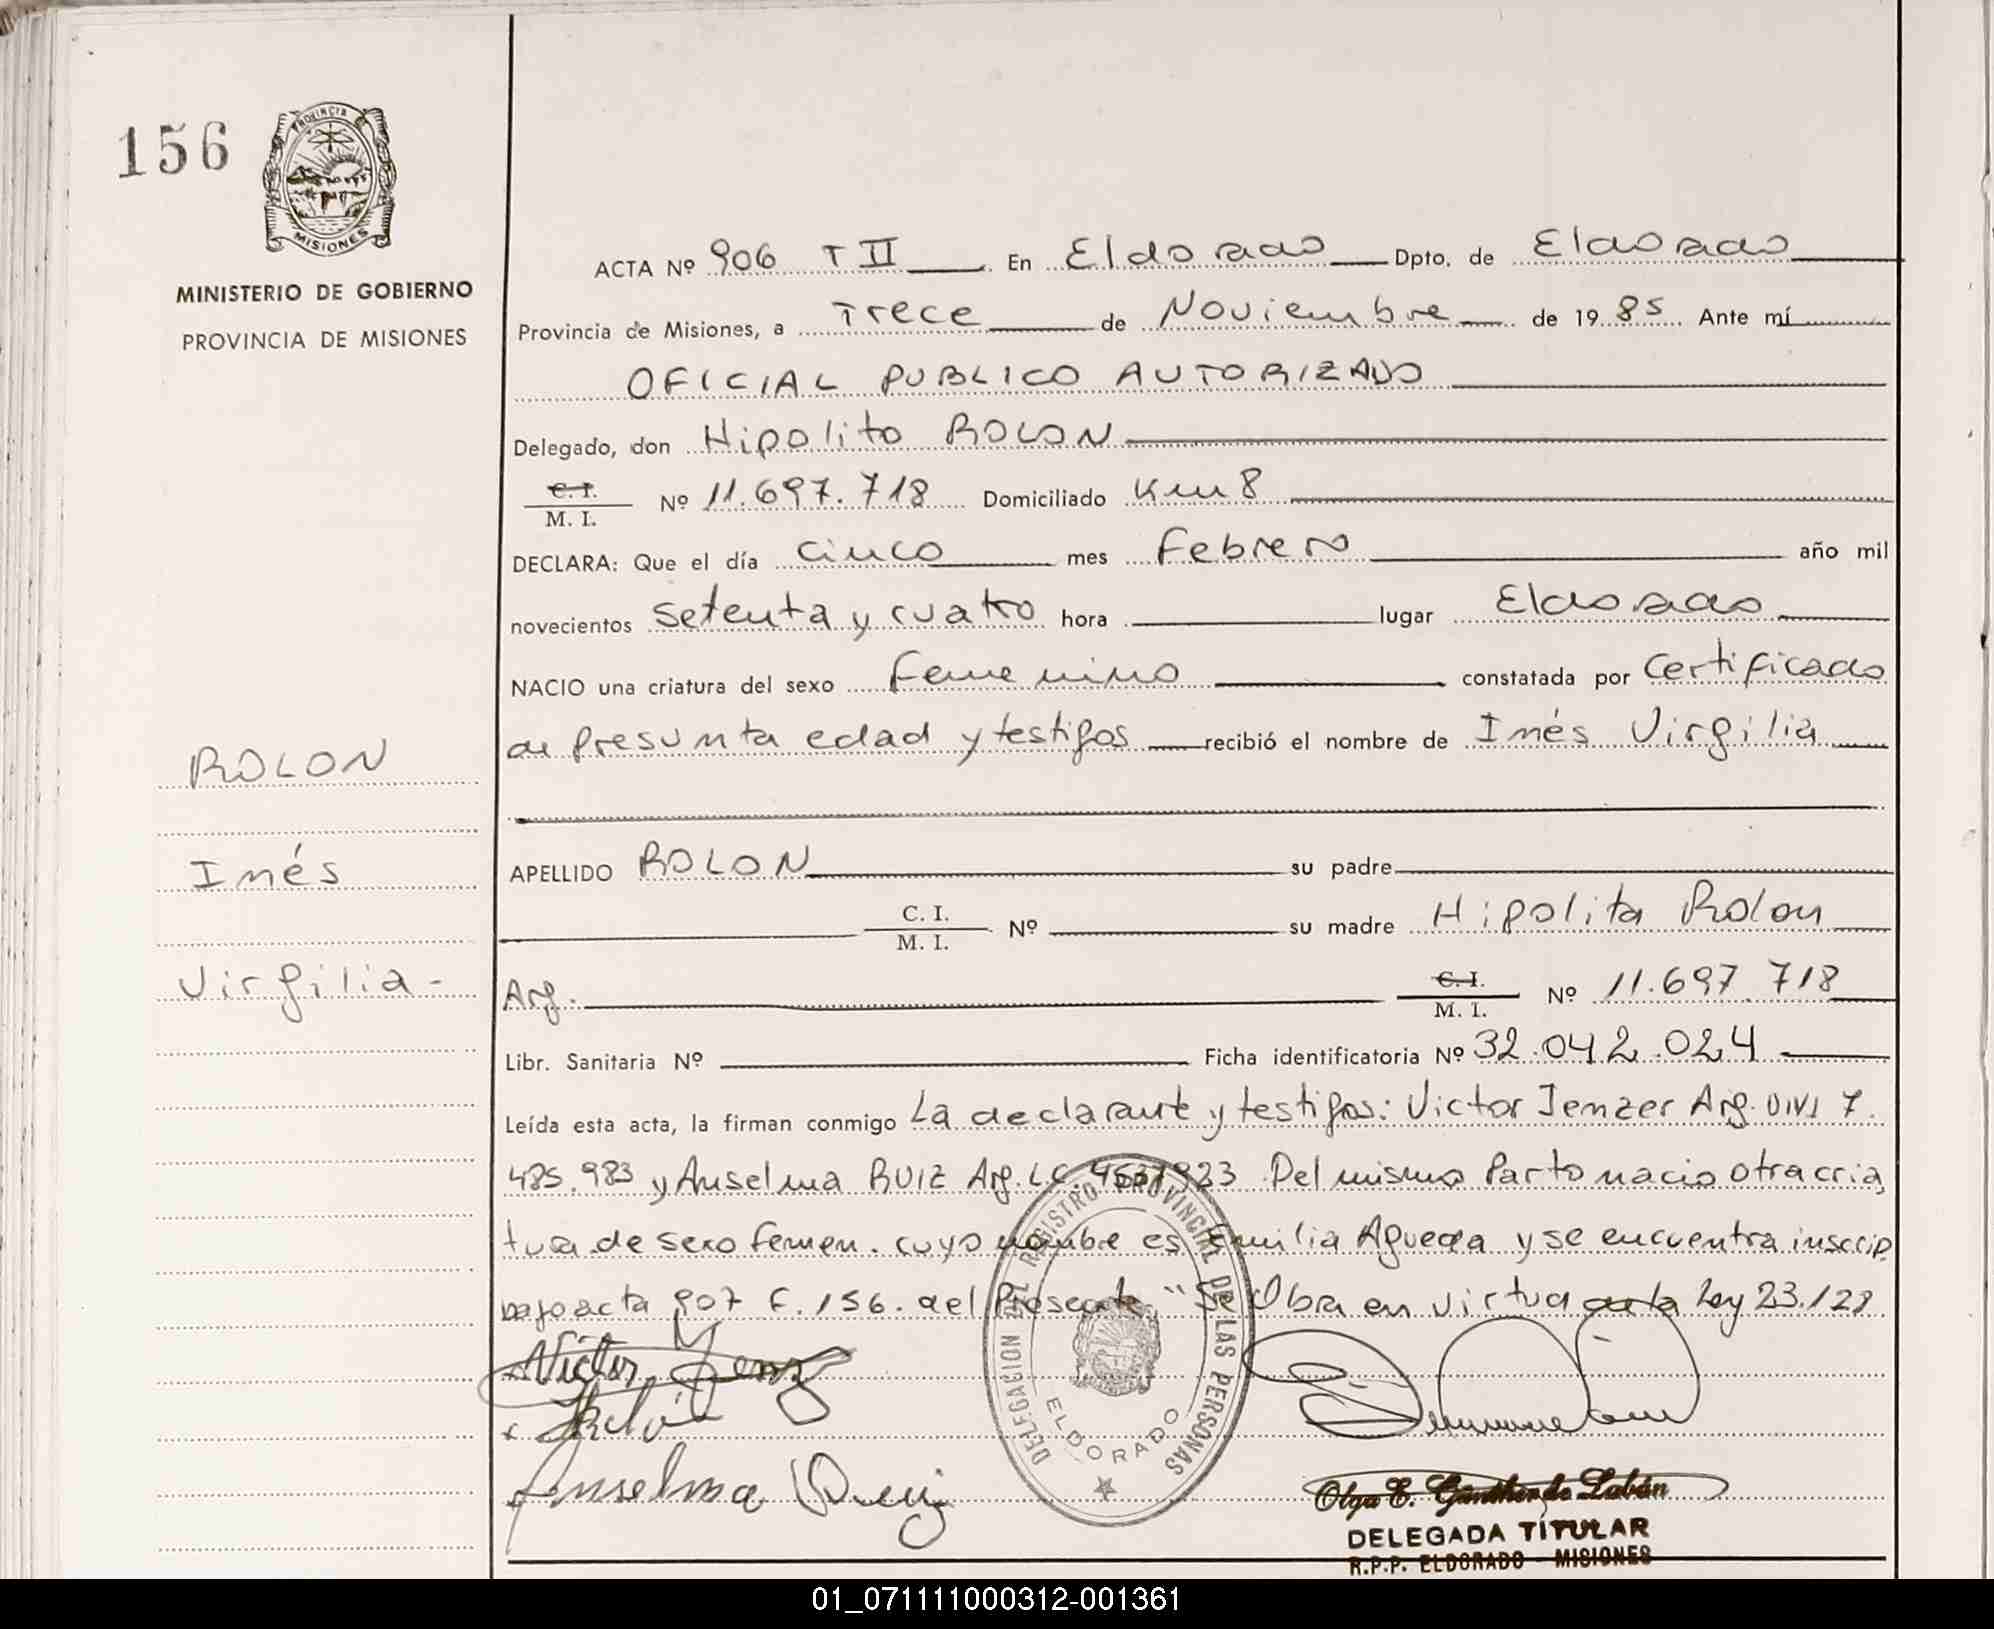 156
PROVINCIA
MISIONES
MINISTERIO DE GOBIERNO
PROVINCIA DE MISIONES
ROLON
Inés
Virgilia -
ACTA Nº 906 T II En Eldorado Dpto. de Eldorado
Provincia de Misiones, a Trece de Noviembre de 1985 Ante mí
OFICIAL PUBLICO AUTORIZADO
Delegado, don Hipolito ROLON
C. I. / M. I. Nº 11.697.718 Domiciliado Km 8
DECLARA: Que el día cinco mes Febrero año mil
novecientos setenta y cuatro hora lugar Eldorado
NACIO una criatura del sexo Femenino constatada por Certificado
de presunta edad y testigos recibió el nombre de Inés Virgilia
APELLIDO ROLON su padre
C. I. / M. I. Nº su madre Hipolita Rolon
Arg. C. I. / M. I. Nº 11.697.718
Libr. Sanitaria Nº Ficha identificatoria Nº 32.042.024
Leída esta acta, la firman conmigo La declarante y testigos: Victor Jenzer Arg. 7.
485.983 y Anselma RUIZ Arg. L.C. Del mismo Parto nacio otra cria
tura de sexo femen. cuyo nombre es Emilia Agueda y se encuentra inscrip.
bajo acta 907 F. 156. del Presente "Se Obra en virtud de la Ley 23.128
Victor Jenz
Anselma Ruiz
DELEGACION DEL REGISTRO PROVINCIAL DE LAS PERSONAS
ELDORADO
Olga E. Günther de Labán
DELEGADA TITULAR
R.P.P. ELDORADO - MISIONES
01_071111000312-001361